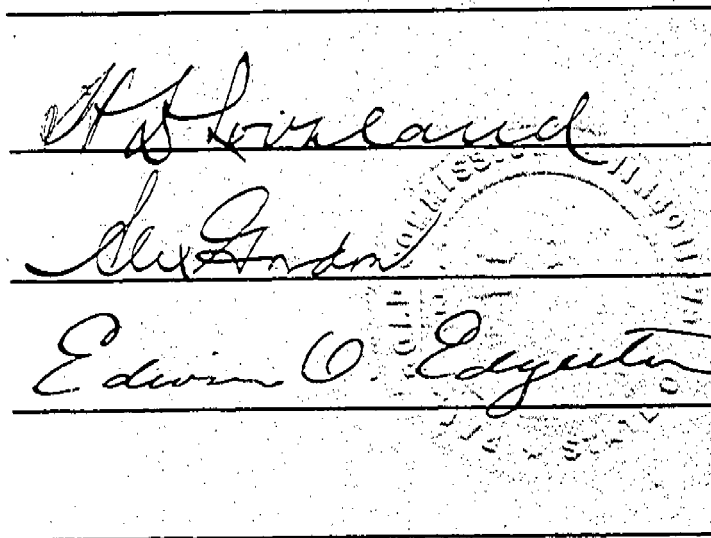 H D Loveland
Alex Gordon
Edwin O. Edgerton